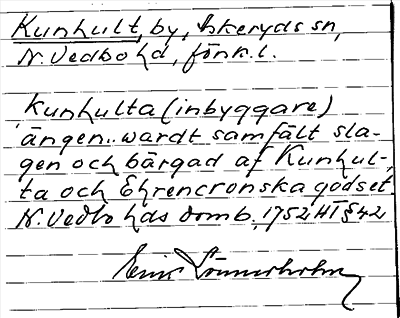 Kunhult, by, Askeryds sn,
N. Vedbo hd, Jönk. l.
Kunhulta (inbyggare)
ängen.. wardt samfält sla-
gen och bärgad af Kunhul-
ta och Ehrencronska godset.
N. Vedbo hds domb., 1752 HT § 42
Erik